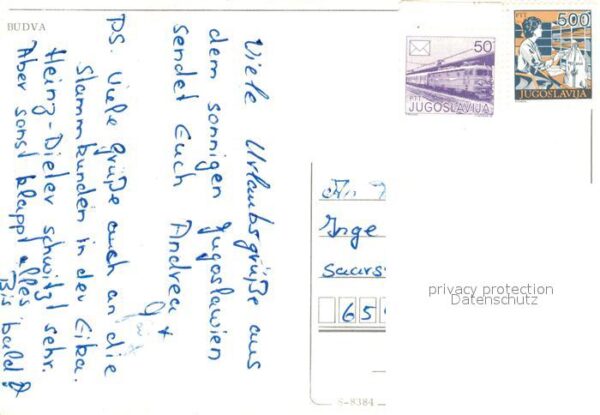 BUDVA
Viele Urlaubsgrüße aus
dem sonnigen Jugoslawien
sendet Euch Andrea +
PS. Viele Grüße auch an die
Stammkunden in der Eiba.
Heinz-Dieter schwitzt sehr.
Aber sonst klappt alles
Bis bald
50
PTT
JUGOSLAVIJA
PTT
500
JUGOSLAVIJA
An
Inge
Saars
65
privacy protection
Datenschutz
S-8384